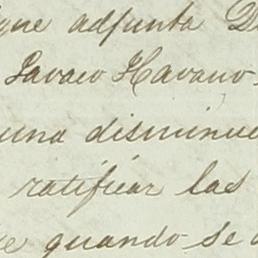 que adjunta D
Havano
una disminu
ratificar las
quando se